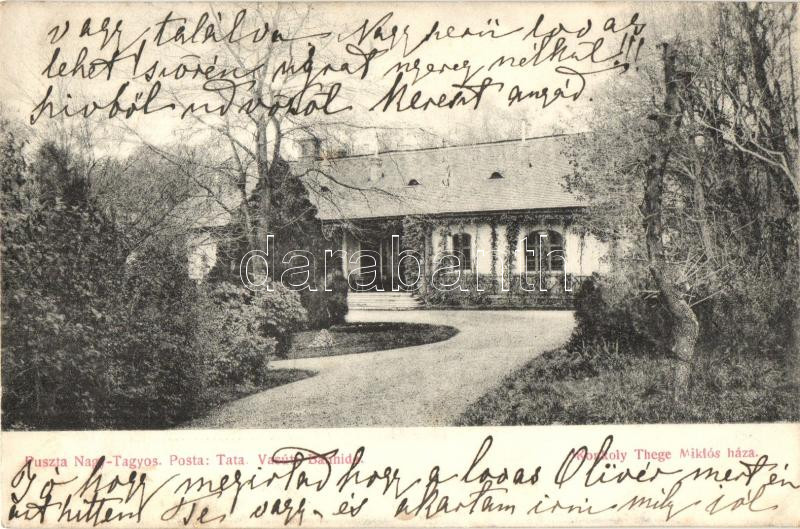 vagy találva Nagyszerü lovas
lehet! szőrén ugrat nyereg nélkül!!!
szivből üdvözöl Kereszt anyád.
darabanth.com
Puszta Nagy-Tagyos. Posta: Tata. Vasút: Bánhida.
Konkoly Thege Miklós háza.
Jó hogy megirtad hogy a lovas Olivér mert én
azt hittem Te vagy - és akartam irni mily jól